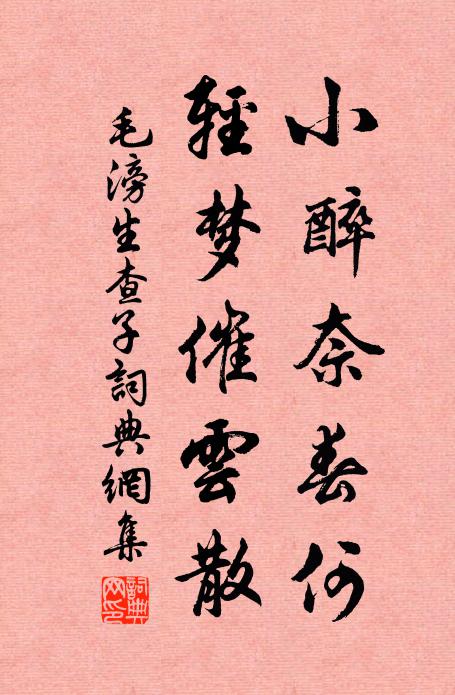 小醉奈春何
輕梦催雲散
毛滂生查子詞典網集
詞典網印